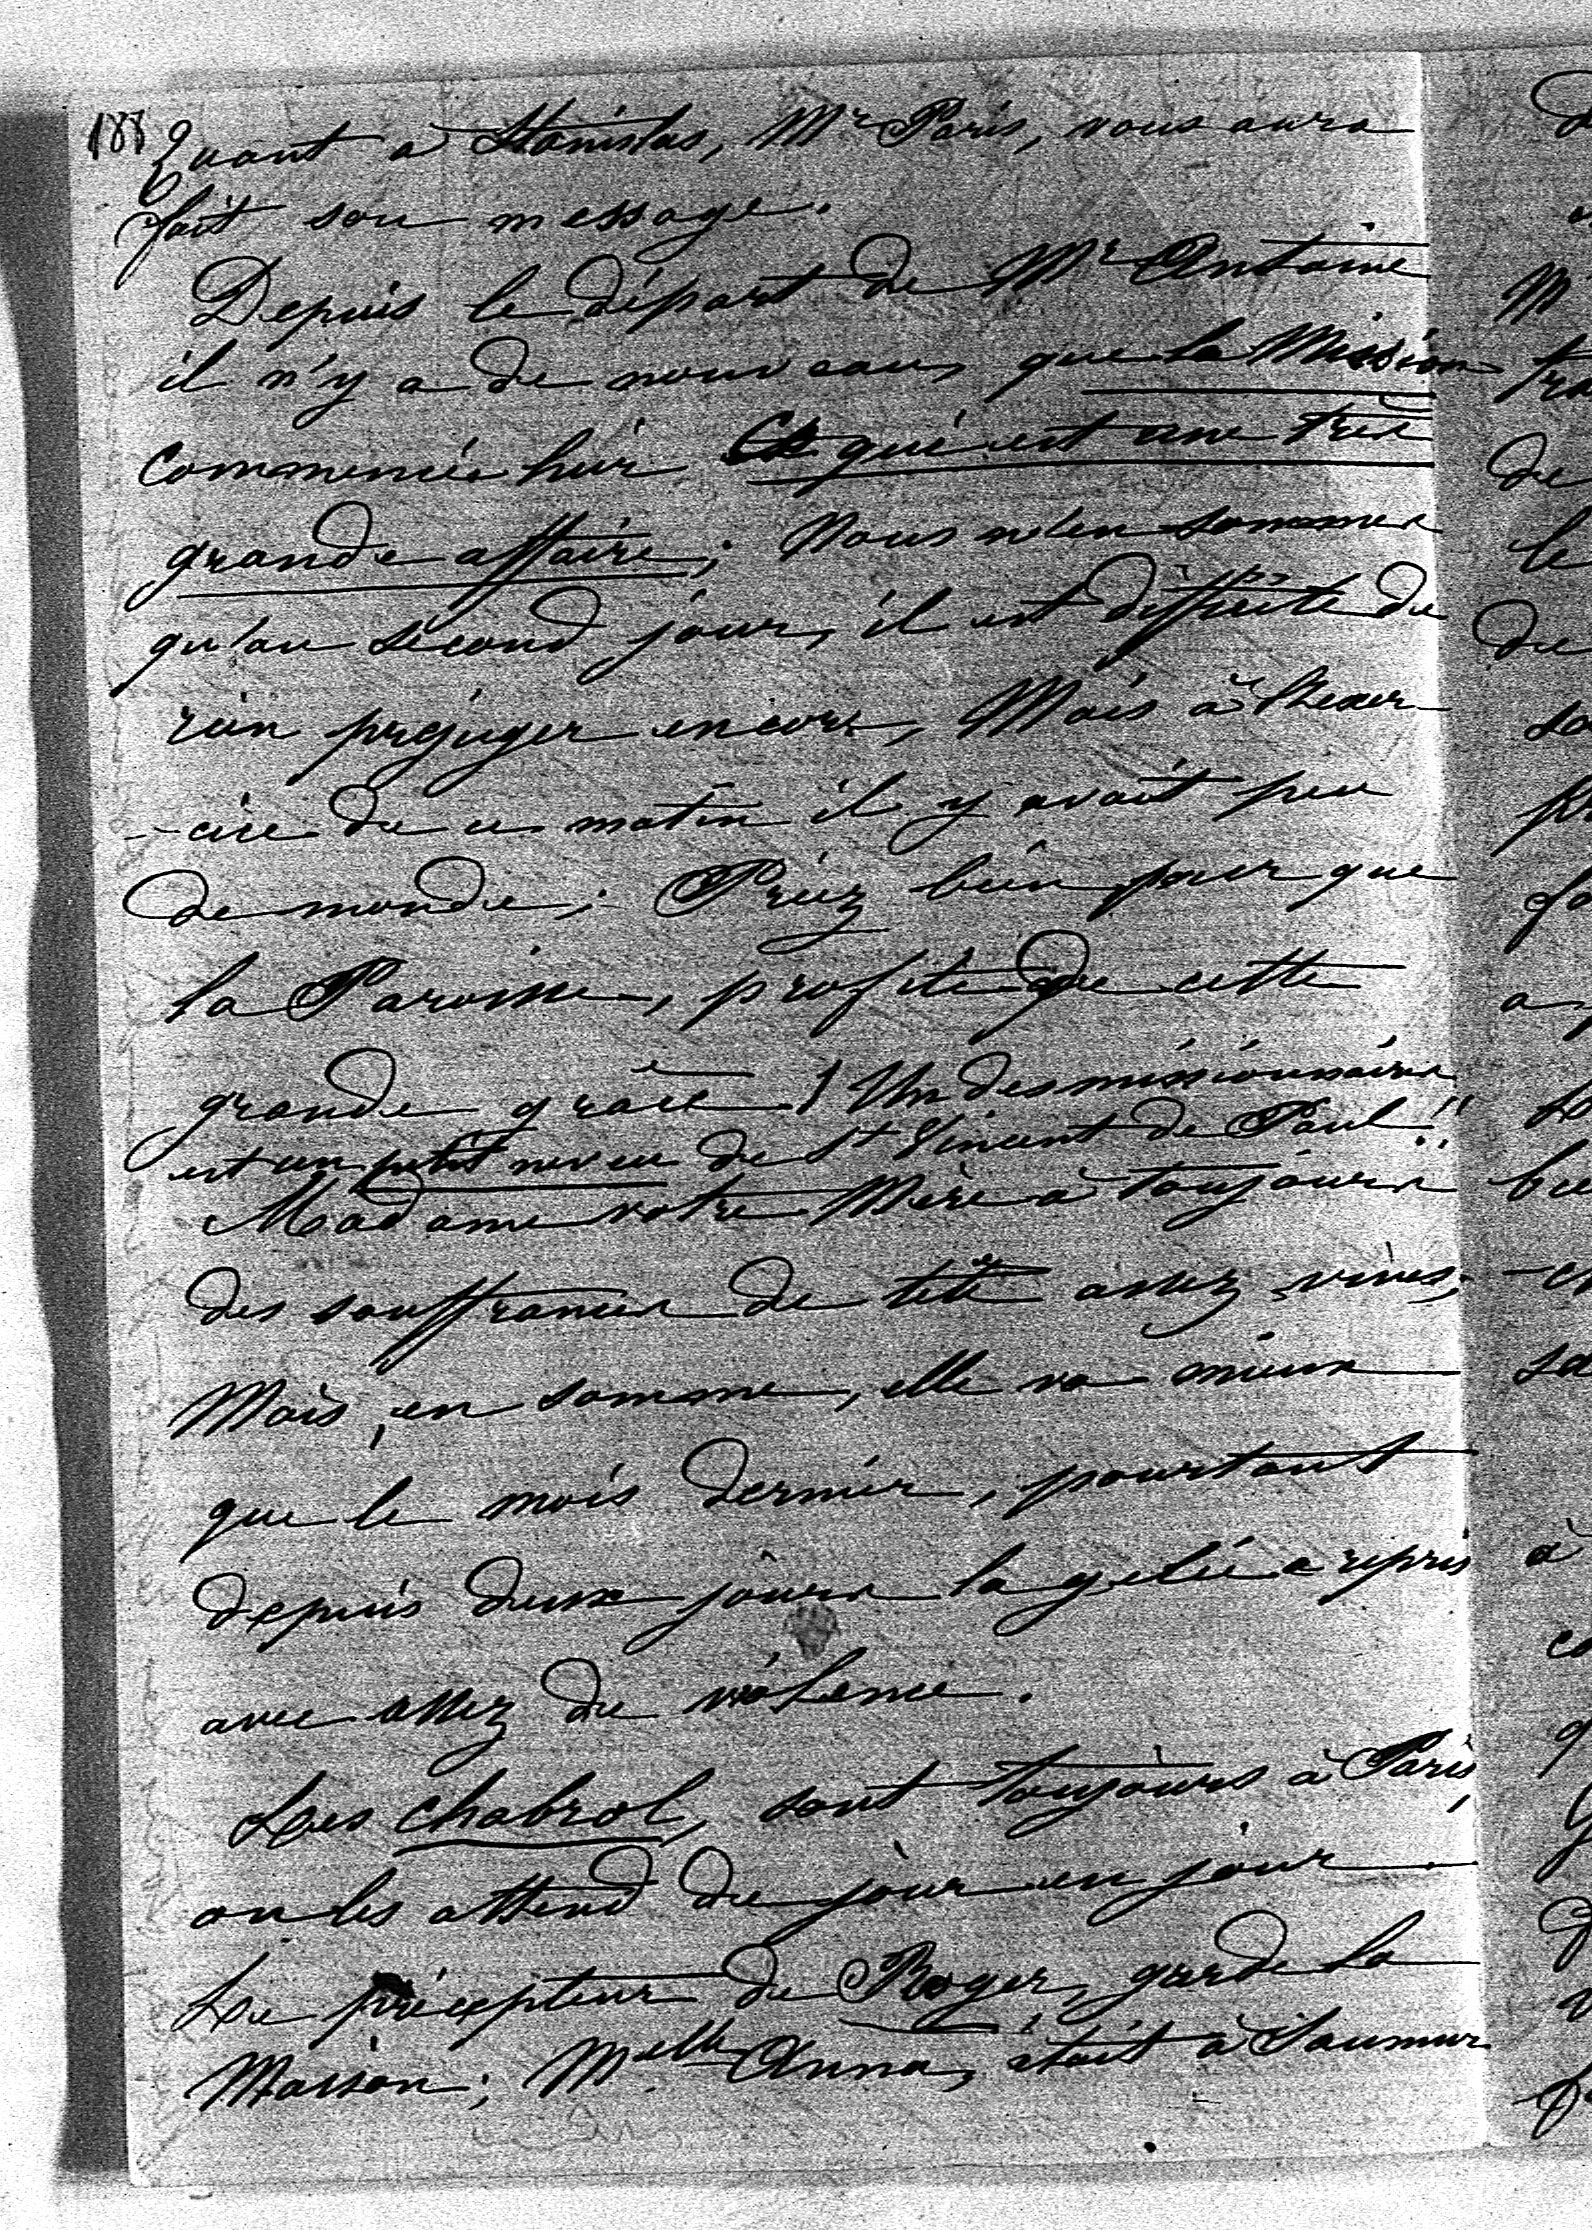 188
Quant à Stanislas, Mr Paris, vous aura
fait son message.
Depuis le départ de Mr Antoine
il n'y a de nouveau, que la Mission
commencée hier et qui est une très
grande affaire; Nous n'en sommes
qu'au second jour, il est difficile de
rien préjuger encore, Mais à l'exer-
-cice de ce matin il y avait peu
de monde; Priez bien pour que
la Paroisse, profite de cette
grande grâce! Un des missionnaires
est un petit neveu de St Vincent de Paul!!
Madame votre Mère a toujours
des souffrances de tête assez vives,
Mais, en somme, elle va mieux
que le mois dernier, pourtant
depuis deux jours la gelée a repris
avec assez de violence.
Les Chabrol, sont toujours à Paris,
on les attend de jour en jour
Le précepteur de Roger, garde la
Maison; Melle Anna, était à Saumur